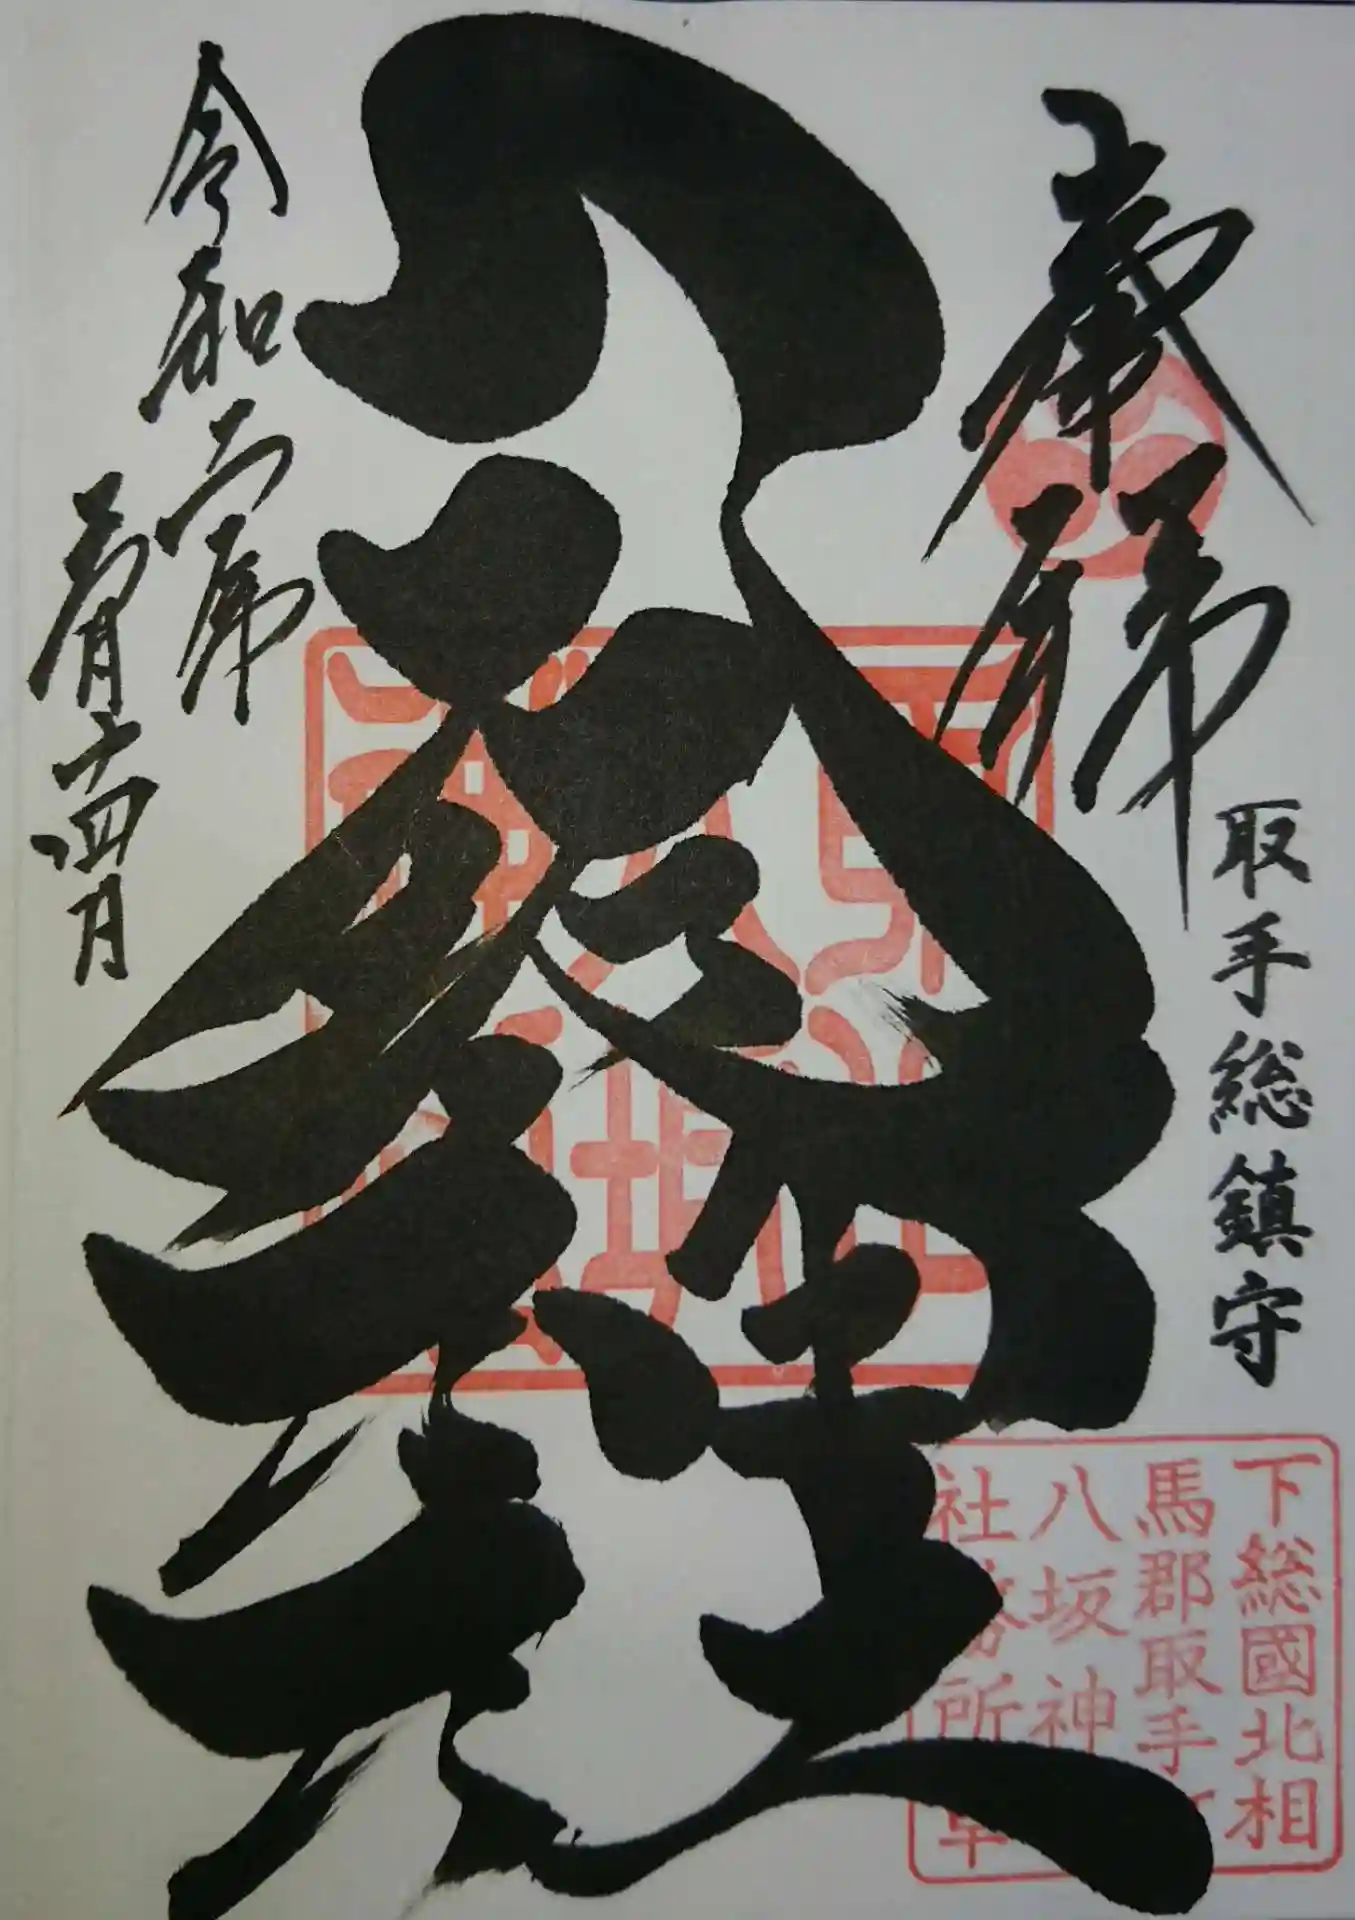 奉拝
取手総鎮守
八坂神社
令和二年
五月十四日
下総國北相
馬郡取手
八坂神
社 所